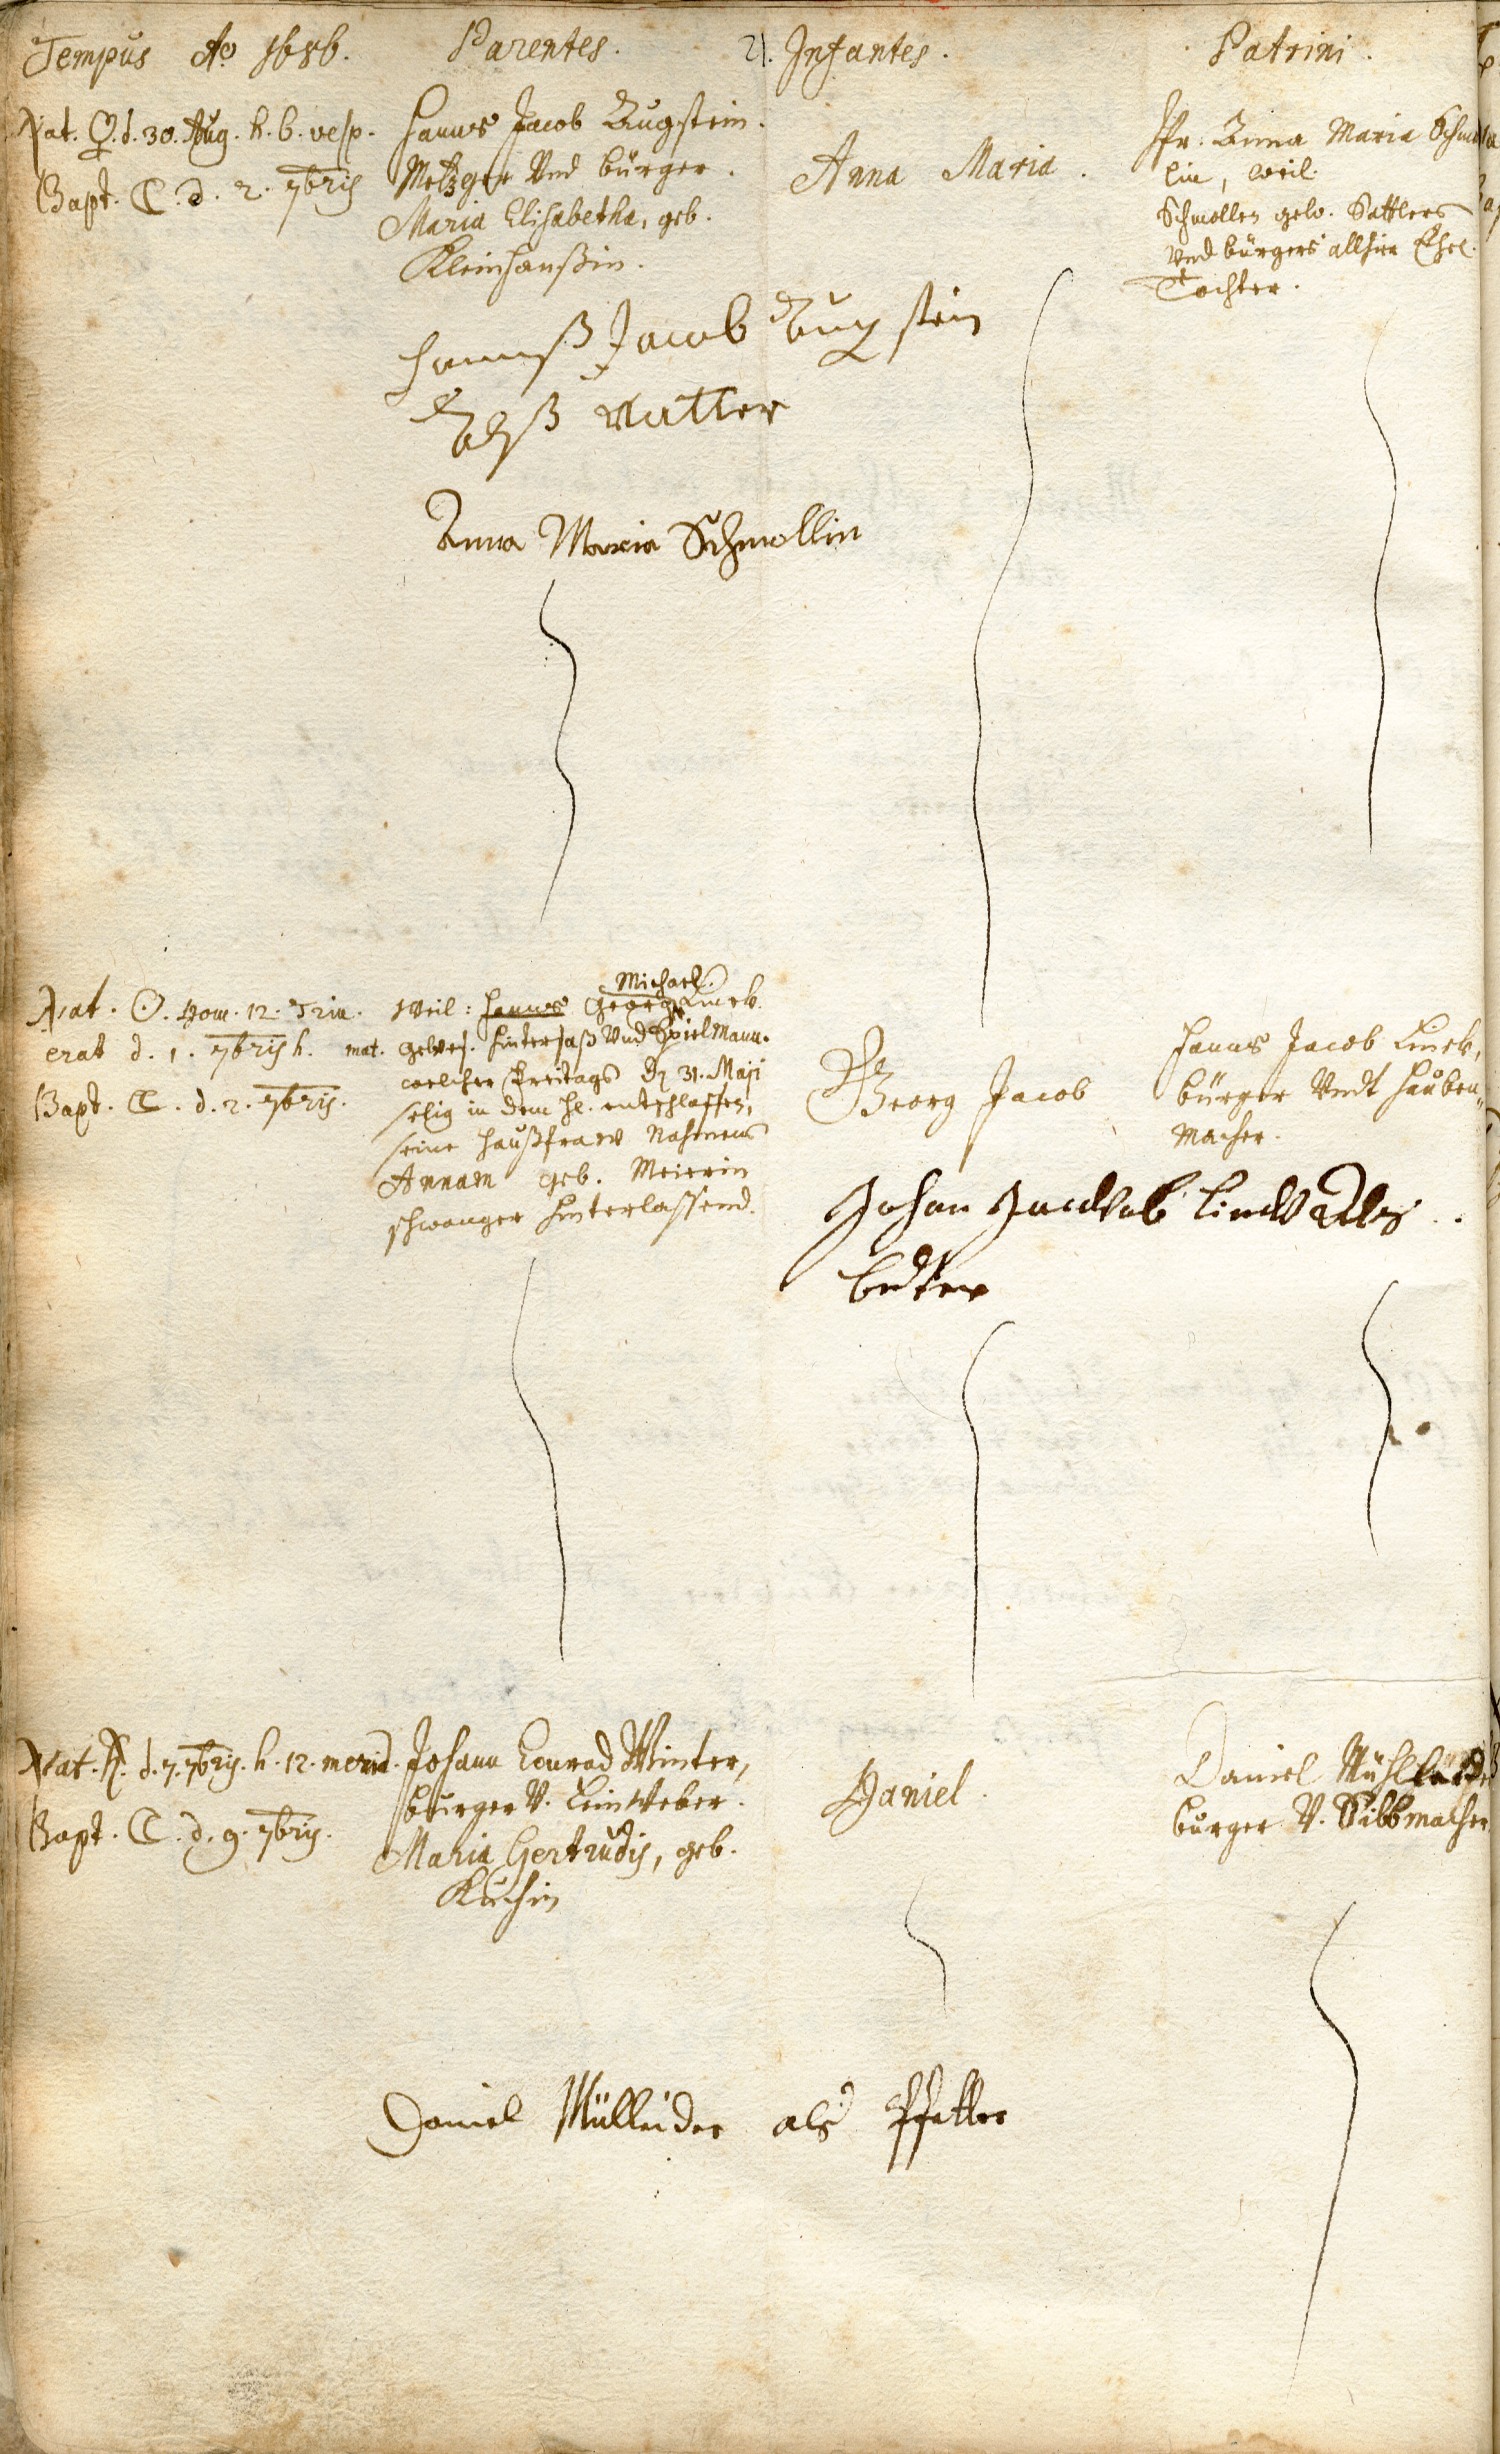 Tempus Ao 1686. Parentes. 21. Infantes. Patrini.
Nat. ♀. d. 30. Aug. h. 6. vesp.
Bapt. ☾. d. 2. 7bris
Hanns Jacob Augstein.
Metzger Und bürger.
Maria Elisabetha, geb.
Kleinhanßin.
Anna Maria.
Jfr: Anna Maria
lin, weil.
Schmollen gew. Sattlers
Und bürgers allhier Ehel.
Tochter.
Hannß Jacob Augstein
Alß Vatter
Anna Maria Schmollin
Nat. ☉. Dom. 12. Trin.
erat d. 1. 7bris h. mat.
Bapt. ☾. d. 2. 7bris.
Michael.
Weil: Hanns Georg Linck
gewes. Hintersaß Und Spielmann.
welcher Freitags d 31. Maji
selig in dem Hl. entschlaffen,
seine Haußfraw Nahmens
Annam geb. Meierin
schwanger Hinterlassend.
Georg Jacob
Hanns Jacob Linck,
bürger Undt Hauben-
macher.
Johan Jackob Linck Als
Nat. ♄. d. 7. 7bris. h. 12. merid.
Bapt. ☾. d. 9. 7bris.
Johann Conrad Winter,
burger V. Leinweber.
Maria Gertrudis, geb.
Kuchin
Daniel.
Daniel
burger V. Sibbmacher
Daniel Mülleider als Pfetter